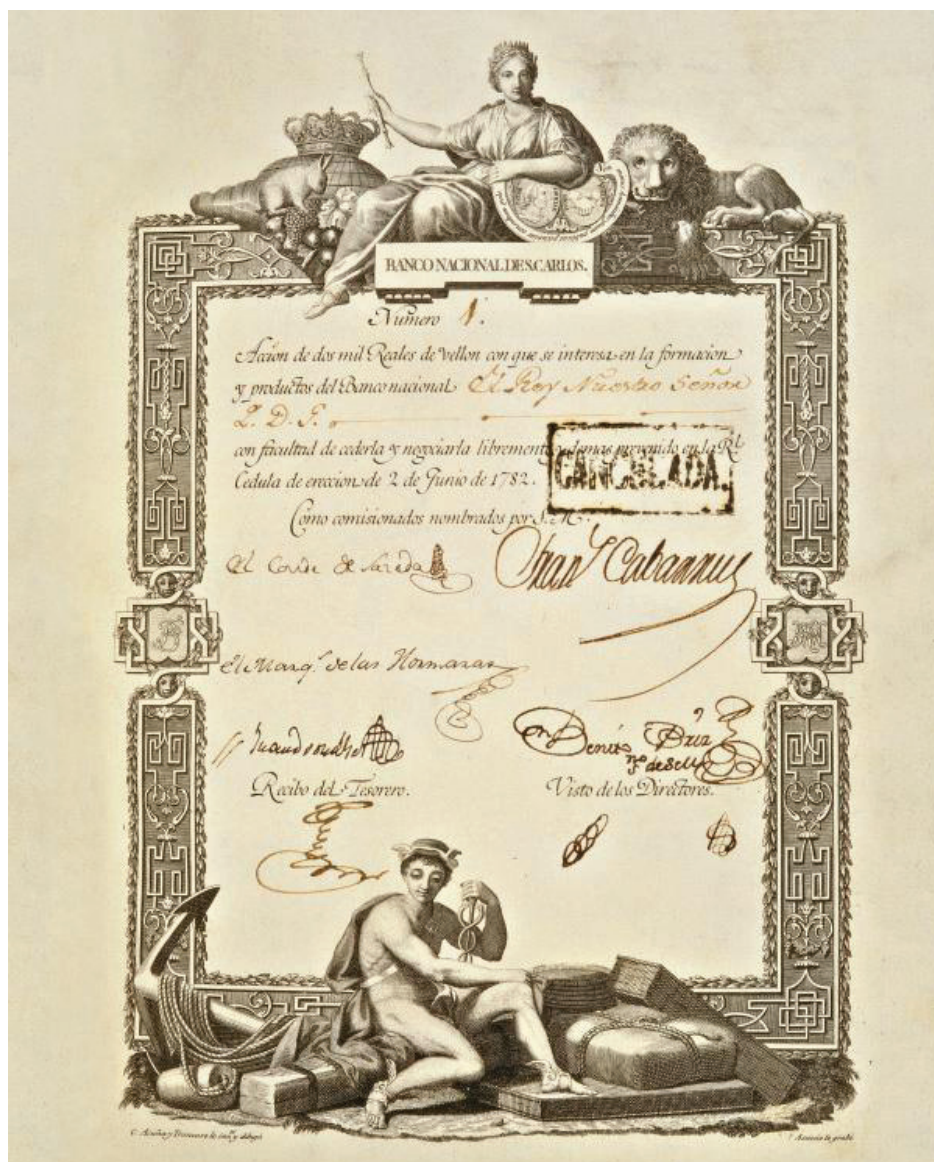 BANCO NACIONAL DE S. CARLOS.
Numero 1.
Acción de dos mil Reales de vellon con que se interesa en la formacion
y productos del Banco nacional El Rey Nuestro Señor
Q. D. G.
con facultad de cederla y negociarla libremente y demas prevenido en la Rl.
Cedula de ereccion de 2 de Junio de 1782.
CANCELADA.
Como comisionados nombrados por S. M.
El Conde de
Cabarrus
El Marq.s de las Hormazas
Benito
Recibo del Tesorero.
Visto de los Directores.